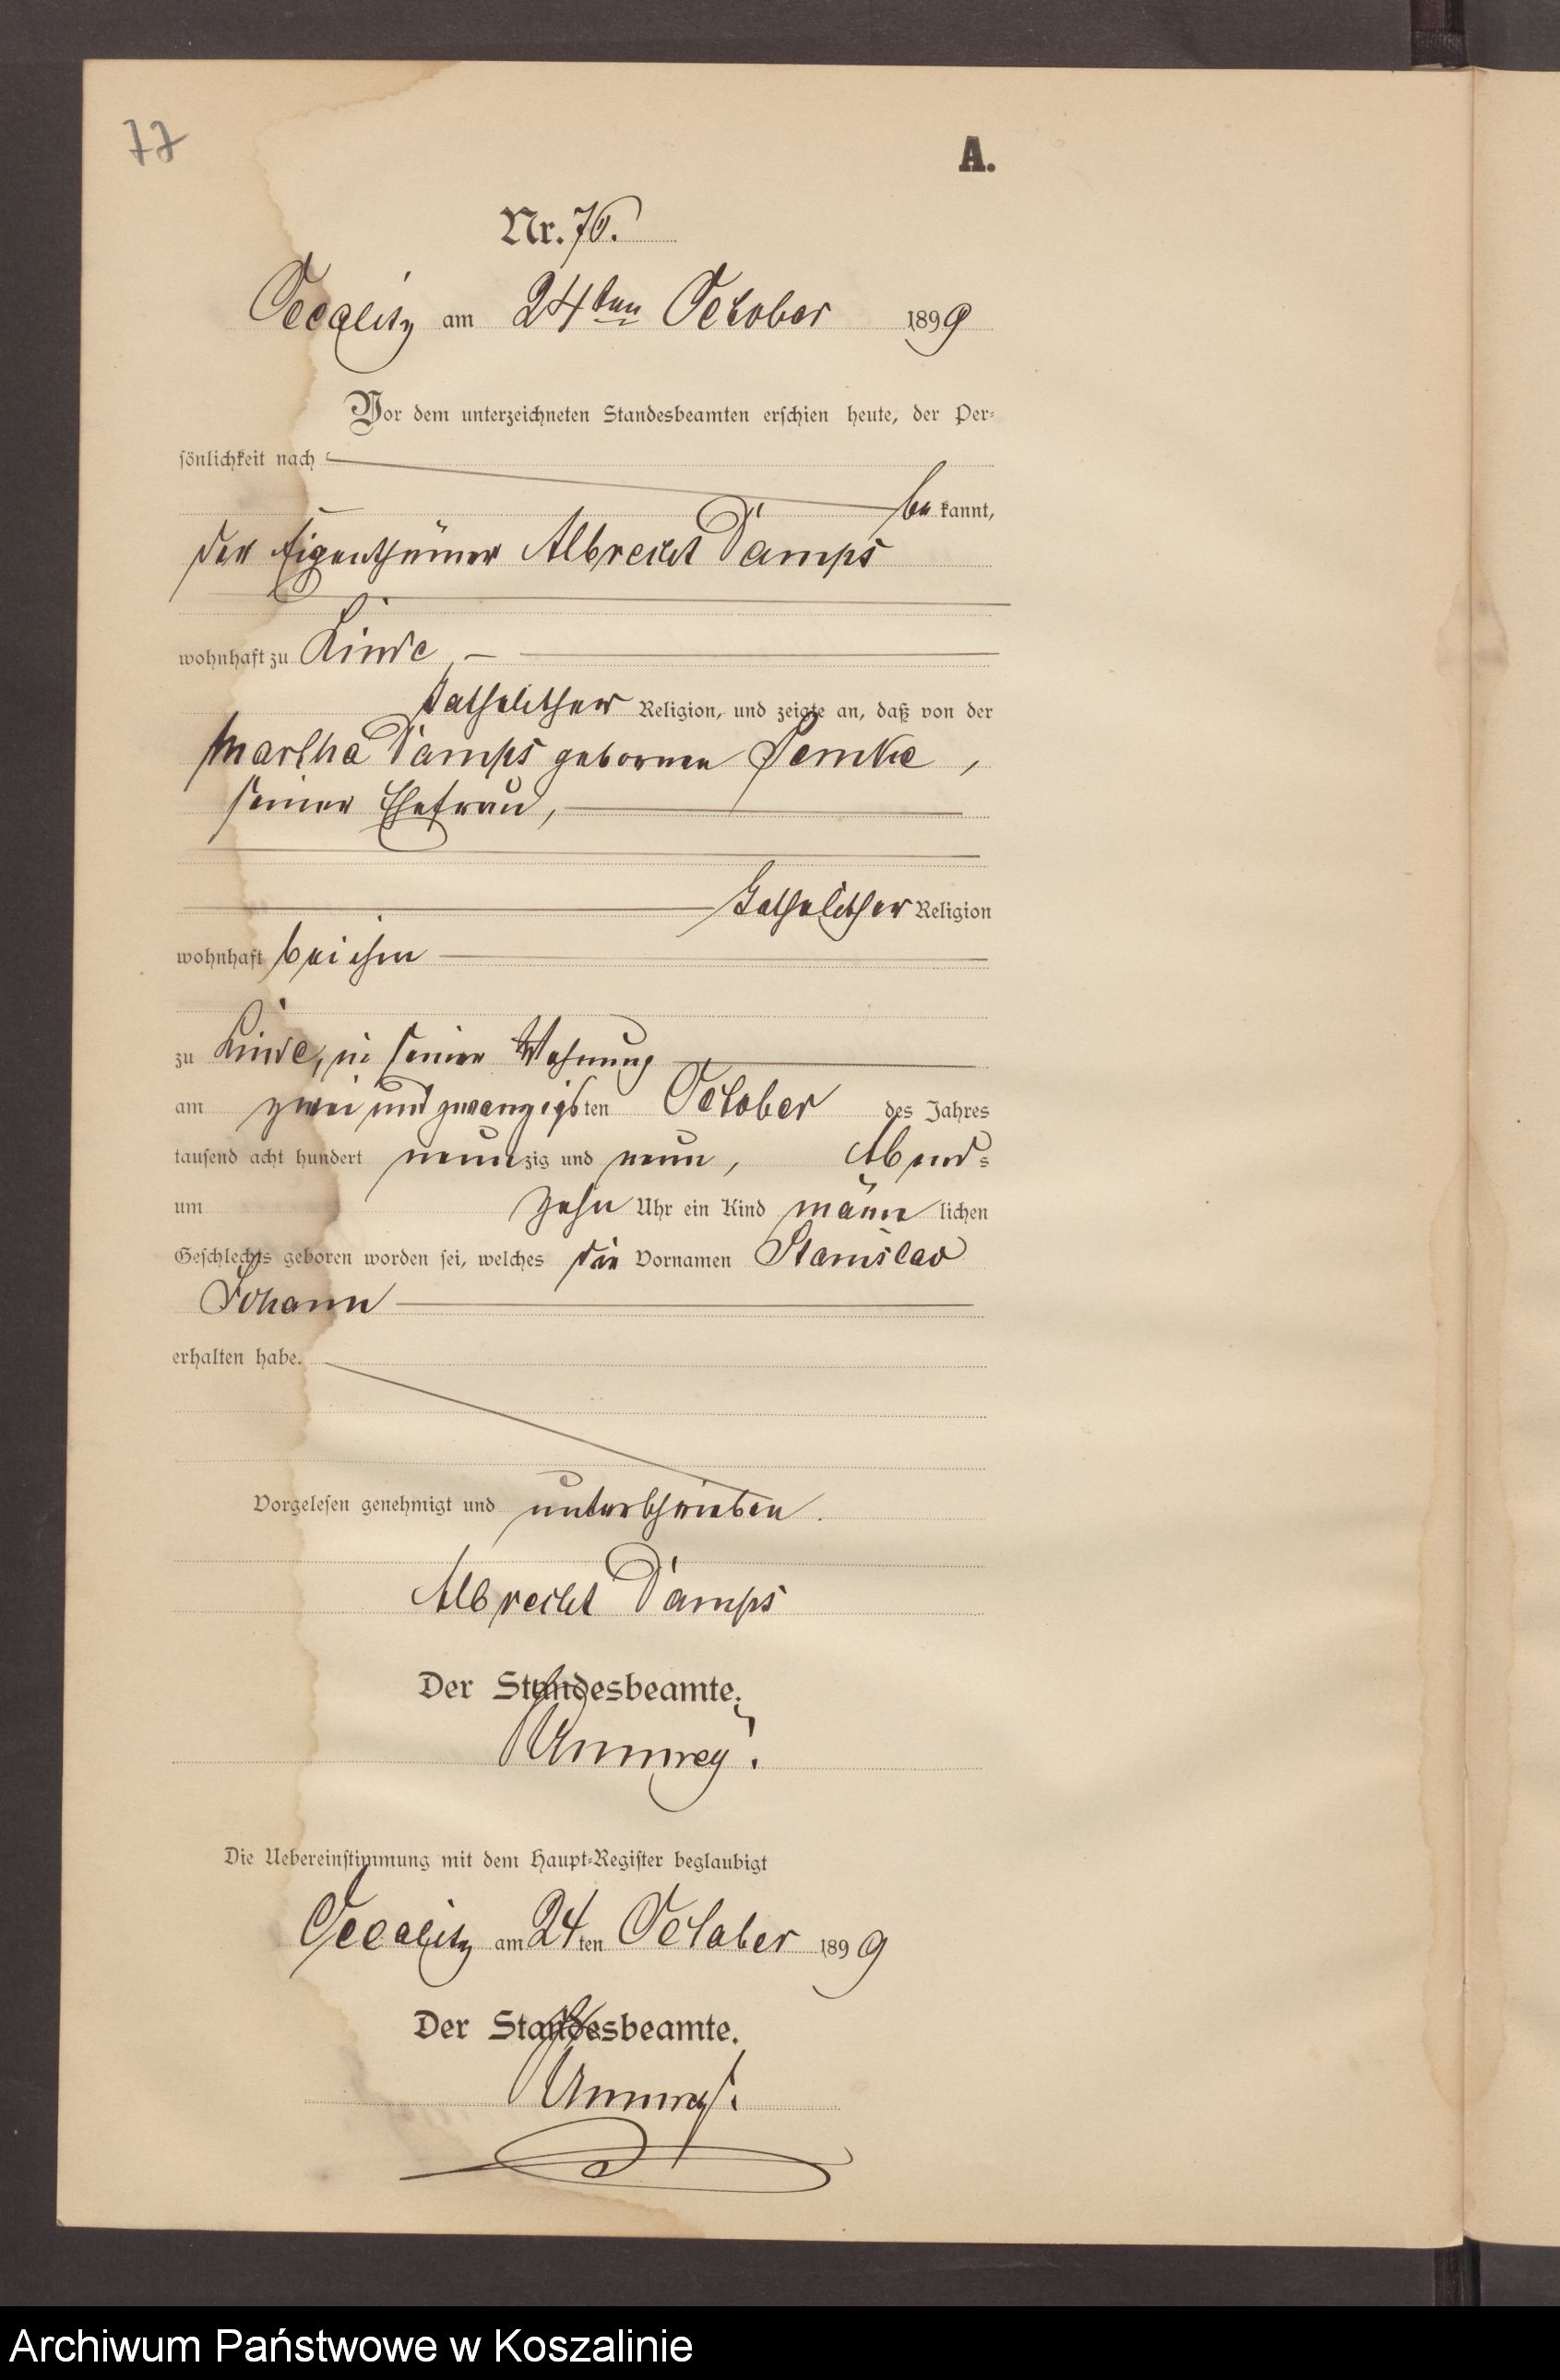 77
A.
Nr. 76.
Oecalitz am 24ten October 1899
Vor dem unterzeichneten Standesbeamten erschien heute, der Per-
sönlichkeit nach
be kannt,
der Eigenthümer Albrecht Damps
wohnhaft zu Linde,
katholischer Religion, und zeigte an, daß von der
Martha Damps geborenen,
seiner Ehefrau,
katholischer Religion
wohnhaft bei ihm
zu Linde, in seiner Wohnung
am zwei und zwanzigsten October des Jahres
tausend acht hundert neunzig und neun, Abend-s
um zehn Uhr ein Kind männ lichen
Geschlechts geboren worden sei, welches die Vornamen Stanislav
Johann
erhalten habe.
Vorgelesen genehmigt und unterschrieben.
Albrecht Damps
Der Standesbeamte.
Die Uebereinstimmung mit dem Haupt-Register beglaubigt
Oecalitz am 24 ten October 1899
Der Standesbeamte.
Archiwum Państwowe w Koszalinie